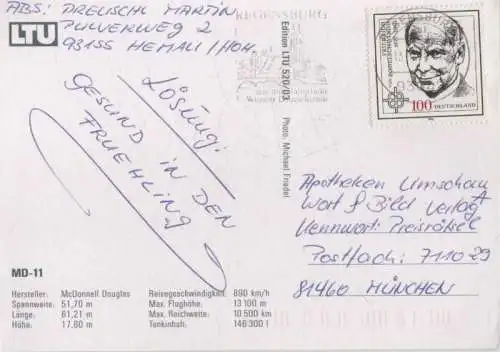 ABS: DREUSCHL MARTIN
PULVERWEG 2
93155 HEMAU / HOH.
LTU
REGENSBURG
LÖSUNG:
GESUND IN DEN
FRUEHLING
Edition LTU 520/03 Photo: Michael Friedel
100 DEUTSCHLAND
Apotheken Umschau
Wort & Bild Verlag
Kennwort: Preisrätsel
Postfach: 711029
81460 MÜNCHEN
MD-11
Hersteller: McDonnell Douglas
Spannweite: 51,70 m
Länge: 61,21 m
Höhe: 17,60 m
Reisegeschwindigkeit: 890 km/h
Max. Flughöhe: 13 100 m
Max. Reichweite: 10.500 km
Tankinhalt: 146 300 l